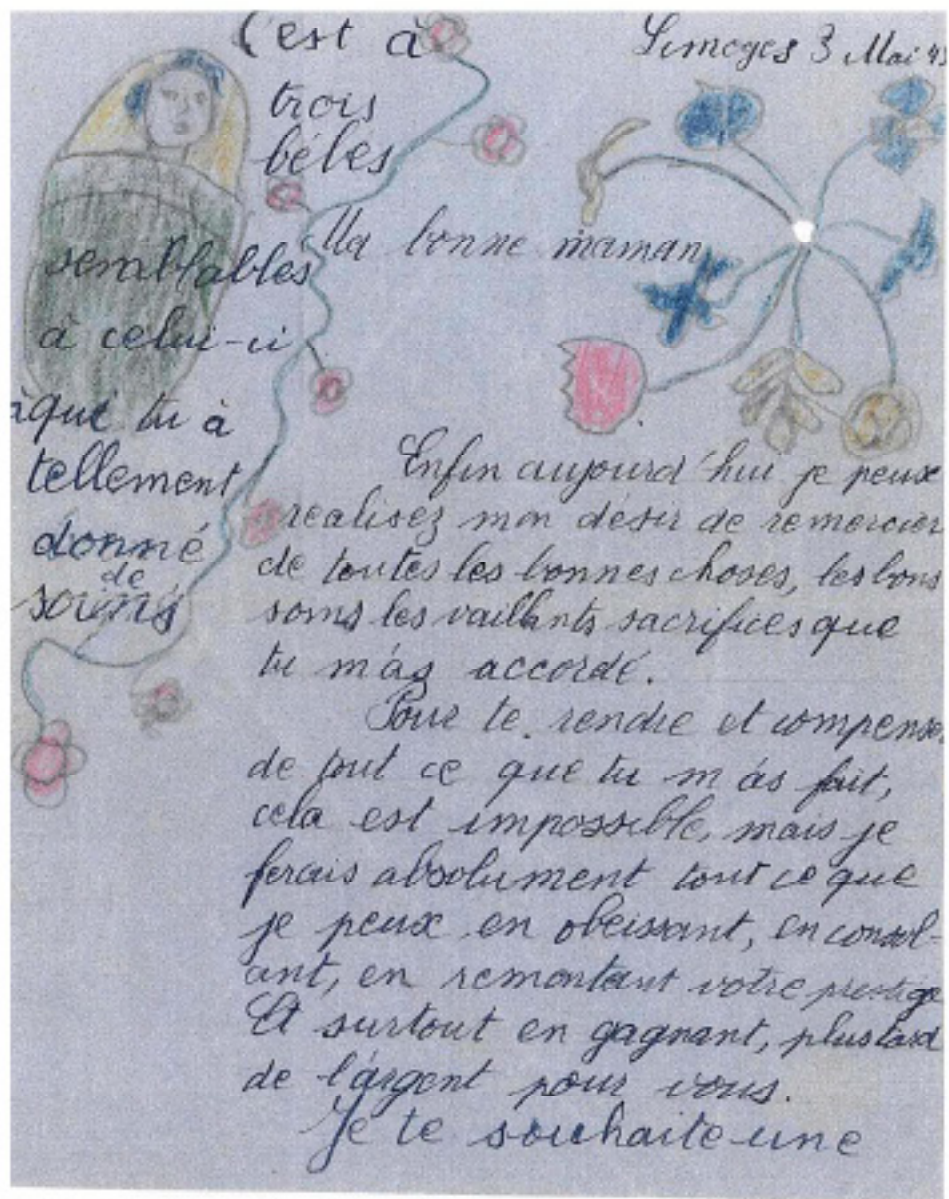 Limoges 3 Mai 43
C'est à
trois
bébés
semblables
à celui-ci
à qui tu à
tellement
donné
de
soins
Ma bonne maman,
Enfin aujourd'hui je peux
realisez mon désir de remercier
de toutes les bonnes choses, les bons
soins les vaillants sacrifices que
tu m'as accordé.
Pour te rendre et compenser
de tout ce que tu m'as fait,
cela est impossible, mais je
ferais absolument tout ce que
je peux en obeissant, en consol-
ant, en remontant votre prestige
Et surtout en gagnant, plus tard
de l'argent pour vous.
Je te souhaite une